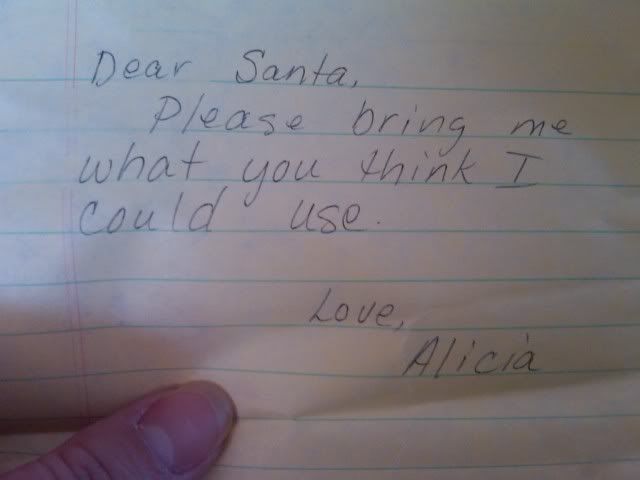 Dear Santa,
Please bring me
what you think I
could use.
Love,
Alicia